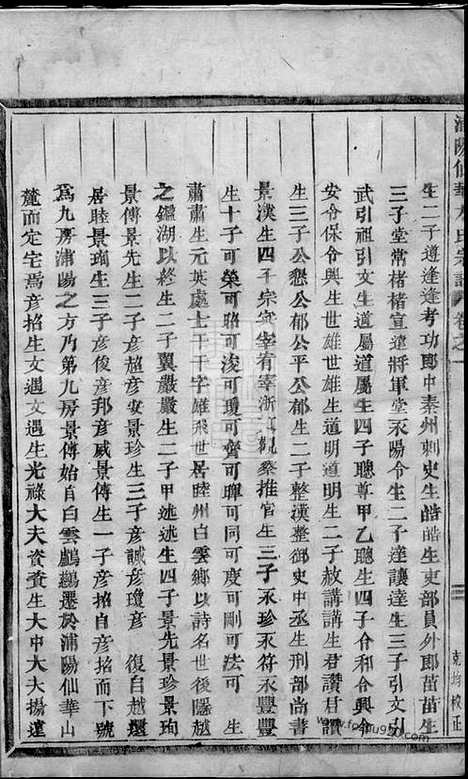 浦陽仙華方氏宗譜 卷之一
生二子遵逢逢考功郎中秦州刺史生皓皓生吏部員外郎苗苗生
三子堂常楮楮宣達將軍堂永陽令生二子達讓達生三子引文引
武引祖引文生道屬道屬生四子聰尊甲乙聰生四子令和令興令
安令保令興生世雄世雄生道明道明生二子赦講講生君讚君讚
生三子公懇公郁公平公郁生二子整漢整御史中丞生刑部尚書
景漢生四子宗实宰宥宰浙觀察推官生三子永珍永符永豐豐
生十子可榮可昭可浚可瓊可齊可暉可同可度可剛可法可 生
肅肅生元英處士干干字雄飛世居睦州白雲鄉以詩名世後隱越
之鑑湖以終生二子翼嚴嚴生二子甲述述生四子景先景珍景珣
景傳景先生二子彥超彥安景珍生三子彥誠彥瓊彥 復自越還
居睦景珣生三子彥俊彥邦彥威景傳生一子彥招景珣而下號
爲九房浦陽之方乃第九房景傳始自白雲鸕鶿遷於浦陽仙華山
麓而定宅焉彥招生文遇文遇生光祿大夫資資生大中大夫揚遠
克均校正
www.fozhu920.com